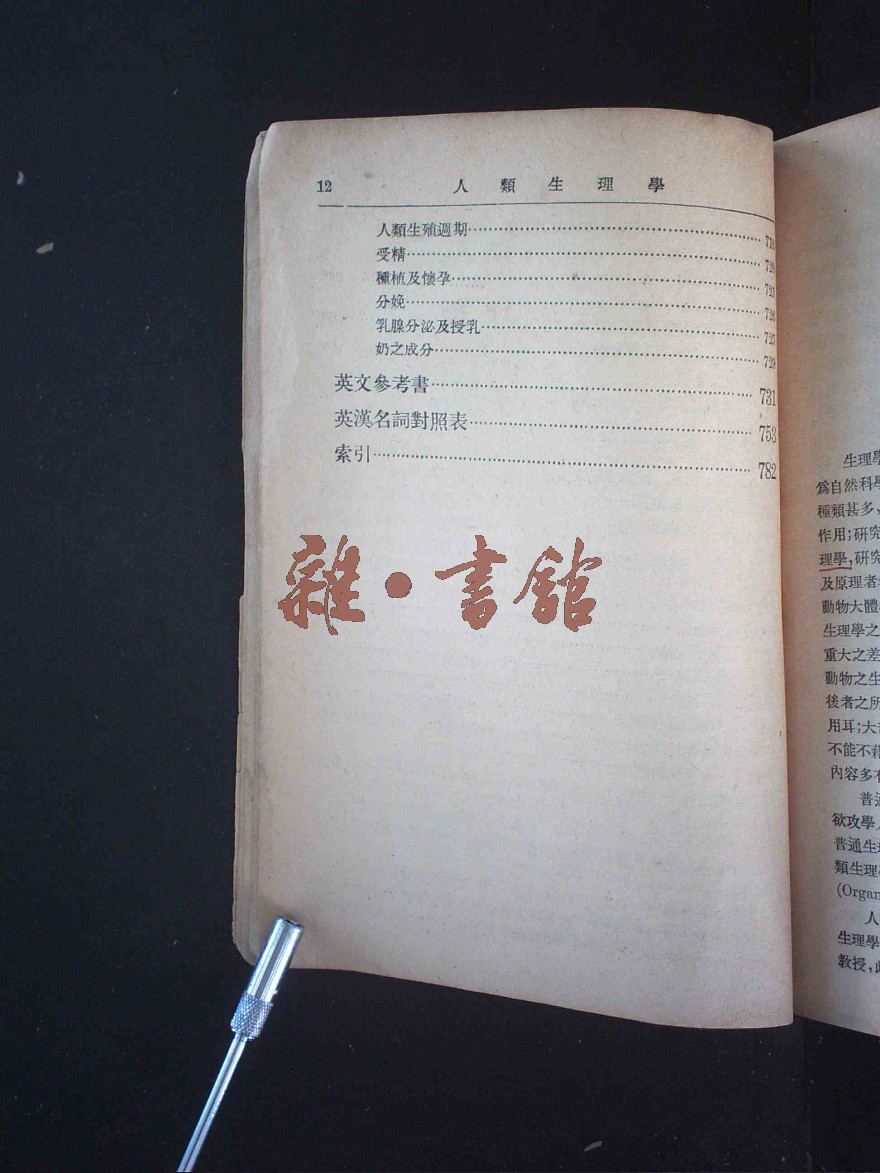 12 人類生理學
人類生殖週期
受精
種植及懷孕
分娩
乳腺分泌及授乳
奶之成分
英文參考書 731
英漢名詞對照表 753
索引 782
雜·書館
生理學
爲自然科學
種類甚多,
作用;研究
理學,研究
及原理者
動物大體
生理學之
重大之差
動物之生
後者之所
用耳;大
不能不藉
內容多有
普通
欲攻學
普通生理
類生理
(Organ
人
生理學
教授,